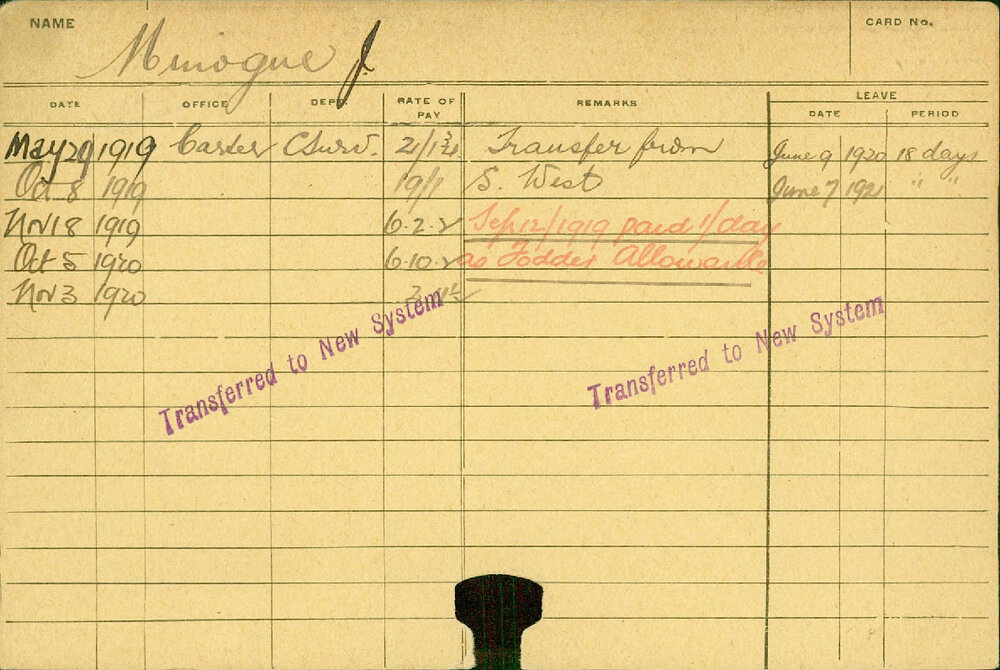 NAME
CARD No.
Minogue J.
DATE OFFICE DEPT. RATE OF PAY REMARKS LEAVE
DATE PERIOD
May 29 1919 Carter C Serv. 21/1 3/4 Transfer from June 9 1920 18 days
Oct 8 1919 19/1 S. West June 7 1921 " "
Nov 18 1919 6.2.2 Sep 12/1919 paid 1/day
Oct 5 1920 6.10.2 as Fodder Allowance
Nov 3 1920
Transferred to New System
Transferred to New System